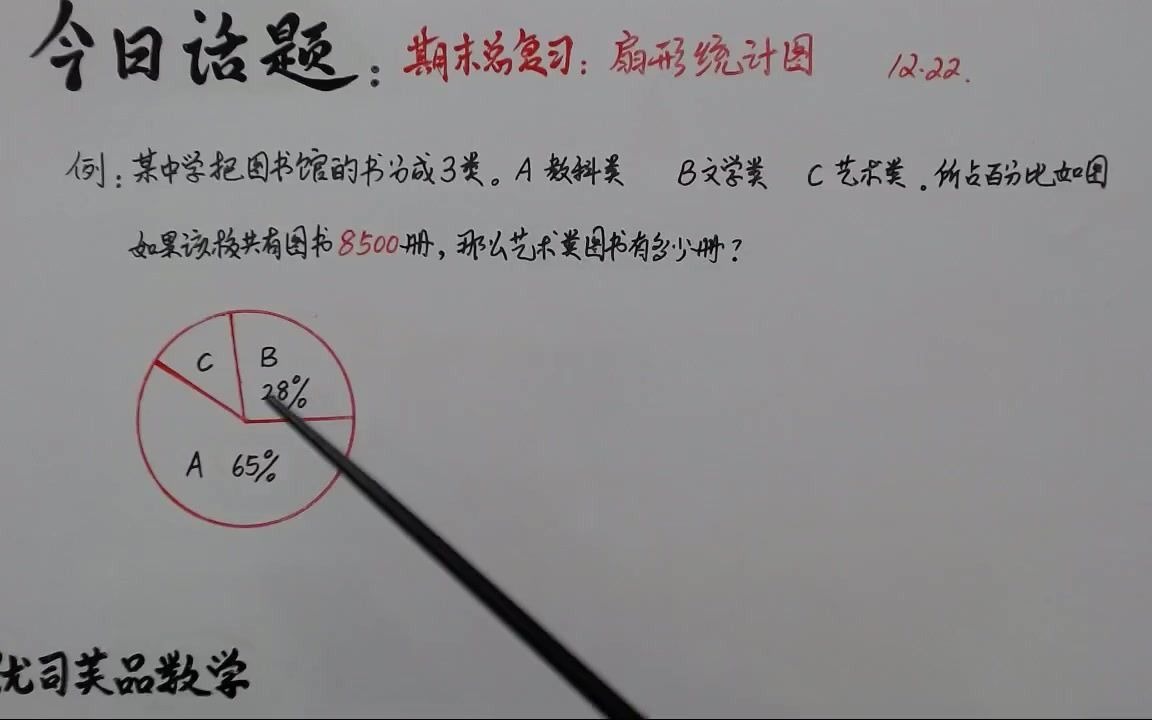 今日话题：期末总复习：扇形统计图 12.22.
例：某中学把图书馆的书分成3类。A 教科类 B文学类 C 艺术类．所占百分比如图
如果该校共有图书8500册，那么艺术类图书有多少册？
C B
28%
A 65%
优司芙品数学